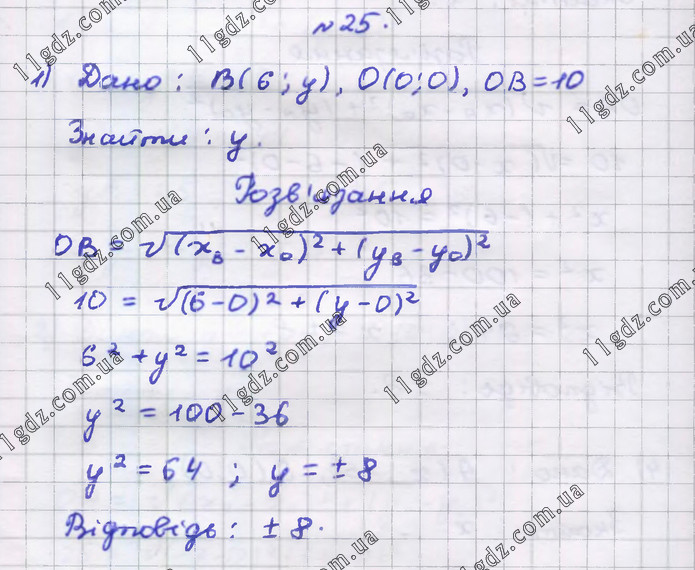 №25.
1) Дано: B(6; y), O(0;0), OB=10
Знайти: y.
Розв'язання
OB = √(x_B - x_O)² + (y_B - y_O)²
10 = √(6-0)² + (y-0)²
6² + y² = 10²
y² = 100 - 36
y² = 64 ; y = ± 8
Відповідь: ± 8.
11gdz.com.ua
11gdz.com.ua
11gdz.com.ua
11gdz.com.ua
11gdz.com.ua
11gdz.com.ua
11gdz.com.ua
11gdz.com.ua
11gdz.com.ua
11gdz.com.ua
11gdz.com.ua
11gdz.com.ua